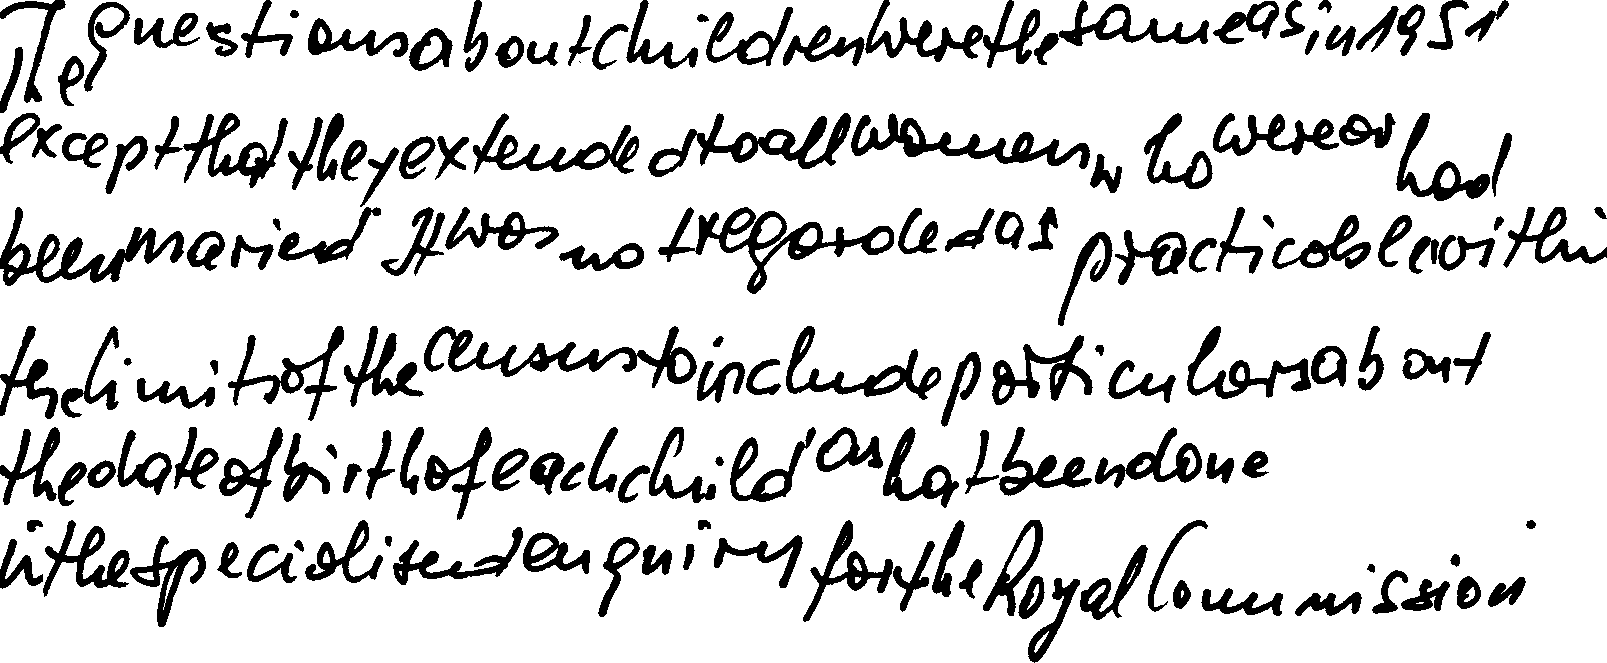 The questions about children were the same as in 1951
except that they extended to all women who were or had
been maried. It was not regarded as practicable within
the limits of the census to include particulars about
the date of birth of each child, as hat been done
in the specialised enquiry for the Royal Commission